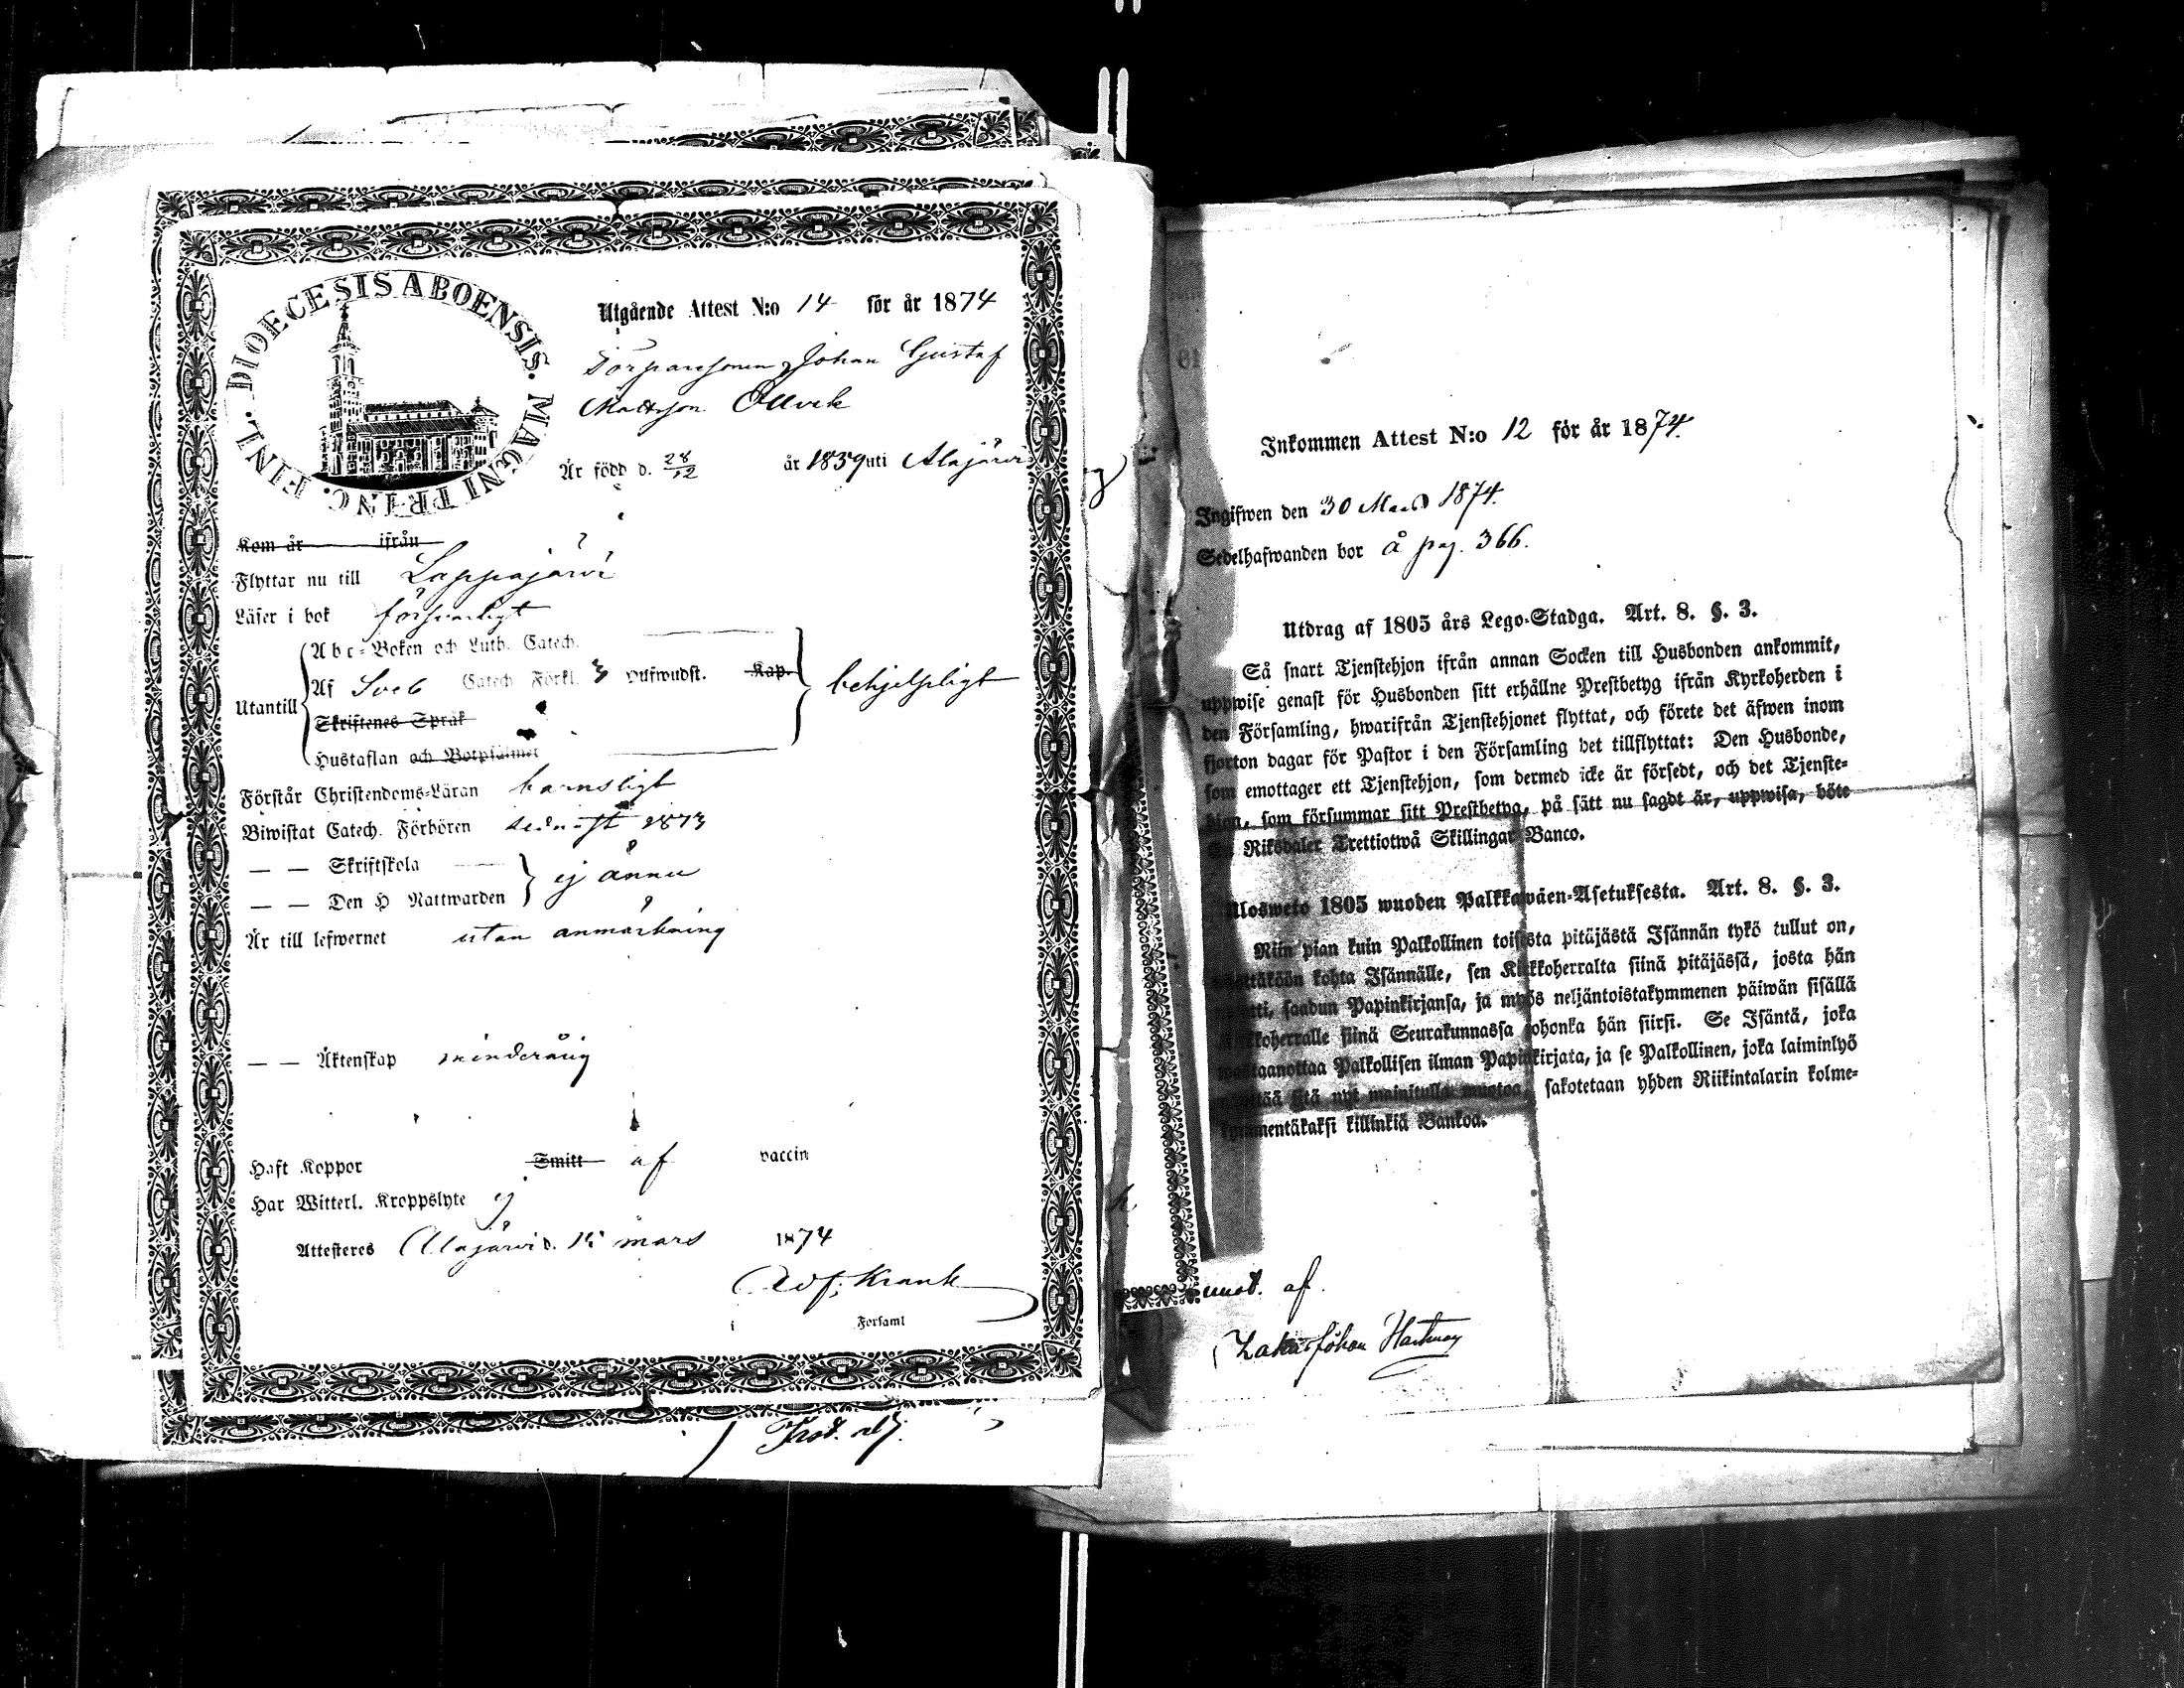 DIOECESIS ABOENSIS. MAGNI PRINC. FINL.
Utgående Attest N:o 14 för år 1874
Torparesonen Johan Gustaf
Mattsson Ollvik
Är född d. 28/12 år 1859 uti Alajärvi
Kom år ifrån
Flyttar nu till Lappajärvi
Läser i bok försvarligt
Utantill
Abc-Boken och Luth. Catech.
Af Sveb Catech Förkl. 3 Hufwudst. Kap.
behjelpligt
Skriftenes Språk
Hustaflan och Botpsalmer
Förstår Christendoms-Läran barnsligt
Biwistat Catech. Förhören sednast 1873
— — Skriftskola
ej ännu
— — Den H Nattwarden
Är till lefwernet utan anmärkning
— — Äktenskap minderårig
Haft Koppor Smitt af vaccin
Har Witterl. Kroppslyte ej
Attesteres Alajärvi d. mars 1874
Adf. Krank
i Forsaml
Inkommen Attest N:o 12 för år 1874.
Ingifwen den 30 Mars 1874.
Sedelhafwanden bor å pag. 366.
Utdrag af 1805 års Lego-Stadga. Art. 8. §. 3.
Så snart Tjenstehjon ifrån annan Socken till Husbonden ankommit,
uppwise genast för Husbonden sitt erhållne Prestbetyg ifrån Kyrkoherden i
den Församling, hwarifrån Tjenstehjonet flyttat, och förete det äfwen inom
fjorton dagar för Pastor i den Församling det tillflyttat: Den Husbonde,
som emottager ett Tjenstehjon, som dermed icke är försedt, och det Tjenste-
hjon, som försummar sitt Prestbetyg, på sätt nu sagdt är, uppwisa, böte
Riksdaler Trettiotwå Skillingar Banco.
Ulosweto 1805 wuoden Palkkawäen-Asetuksesta. Art. 8. §. 3.
Niin pian kuin Palkollinen toisesta pitäjästä Isännän tykö tullut on,
kohta Isännälle, sen Kirkkoherralta siinä pitäjässä, josta hän
saadun Papinkirjansa, ja myös neljäntoistakymmenen päiwän sisällä
Kirkkoherralle siinä Seurakunnassa johonka hän siirsi. Se Isäntä, joka
wastaanottaa Palkollisen ilman Papinkirjata, ja se Palkollinen, joka laiminlyö
sitä nyt mainitulla muotoa, sakotetaan yhden Riikintalarin kolme-
kymmentäkaksi killinkiä Bankoa.
af
Johan